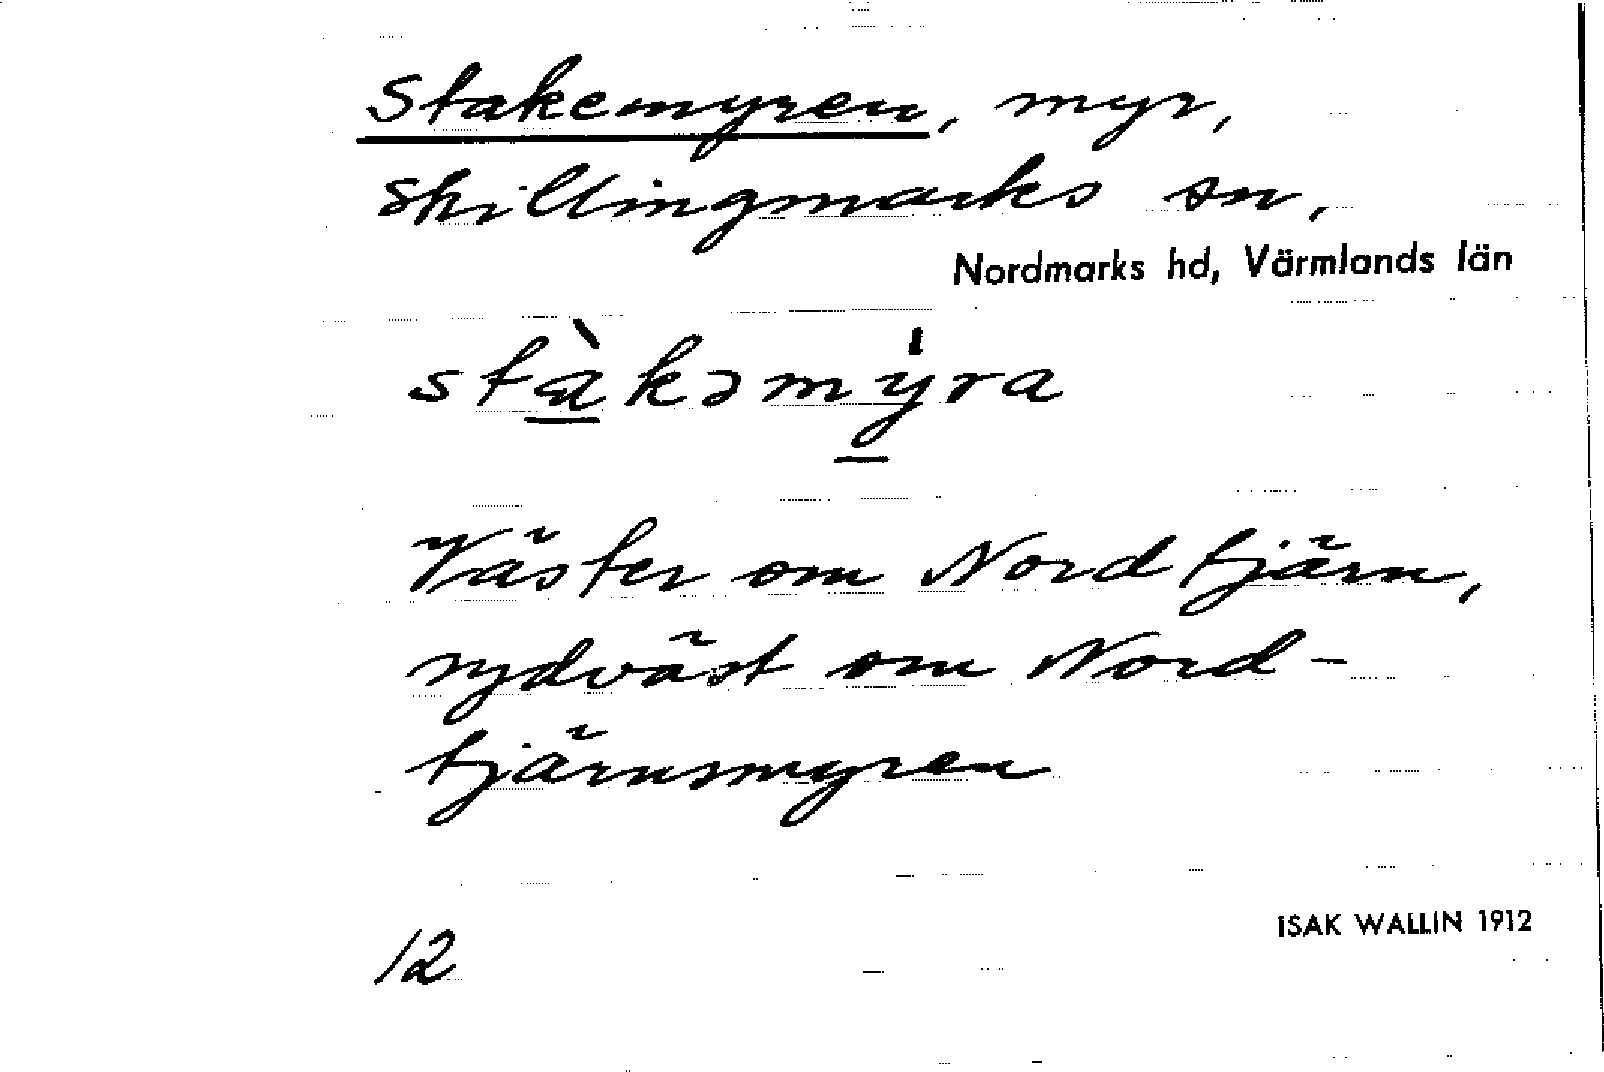 Stakemyren, myr,
Skillingmarks sn,
Nordmarks hd, Värmlands län
stàkəmy̍ra
Väster om Nordtjärn,
sydväst om Nord-
tjärnsmyren
12
ISAK WALLIN 1912